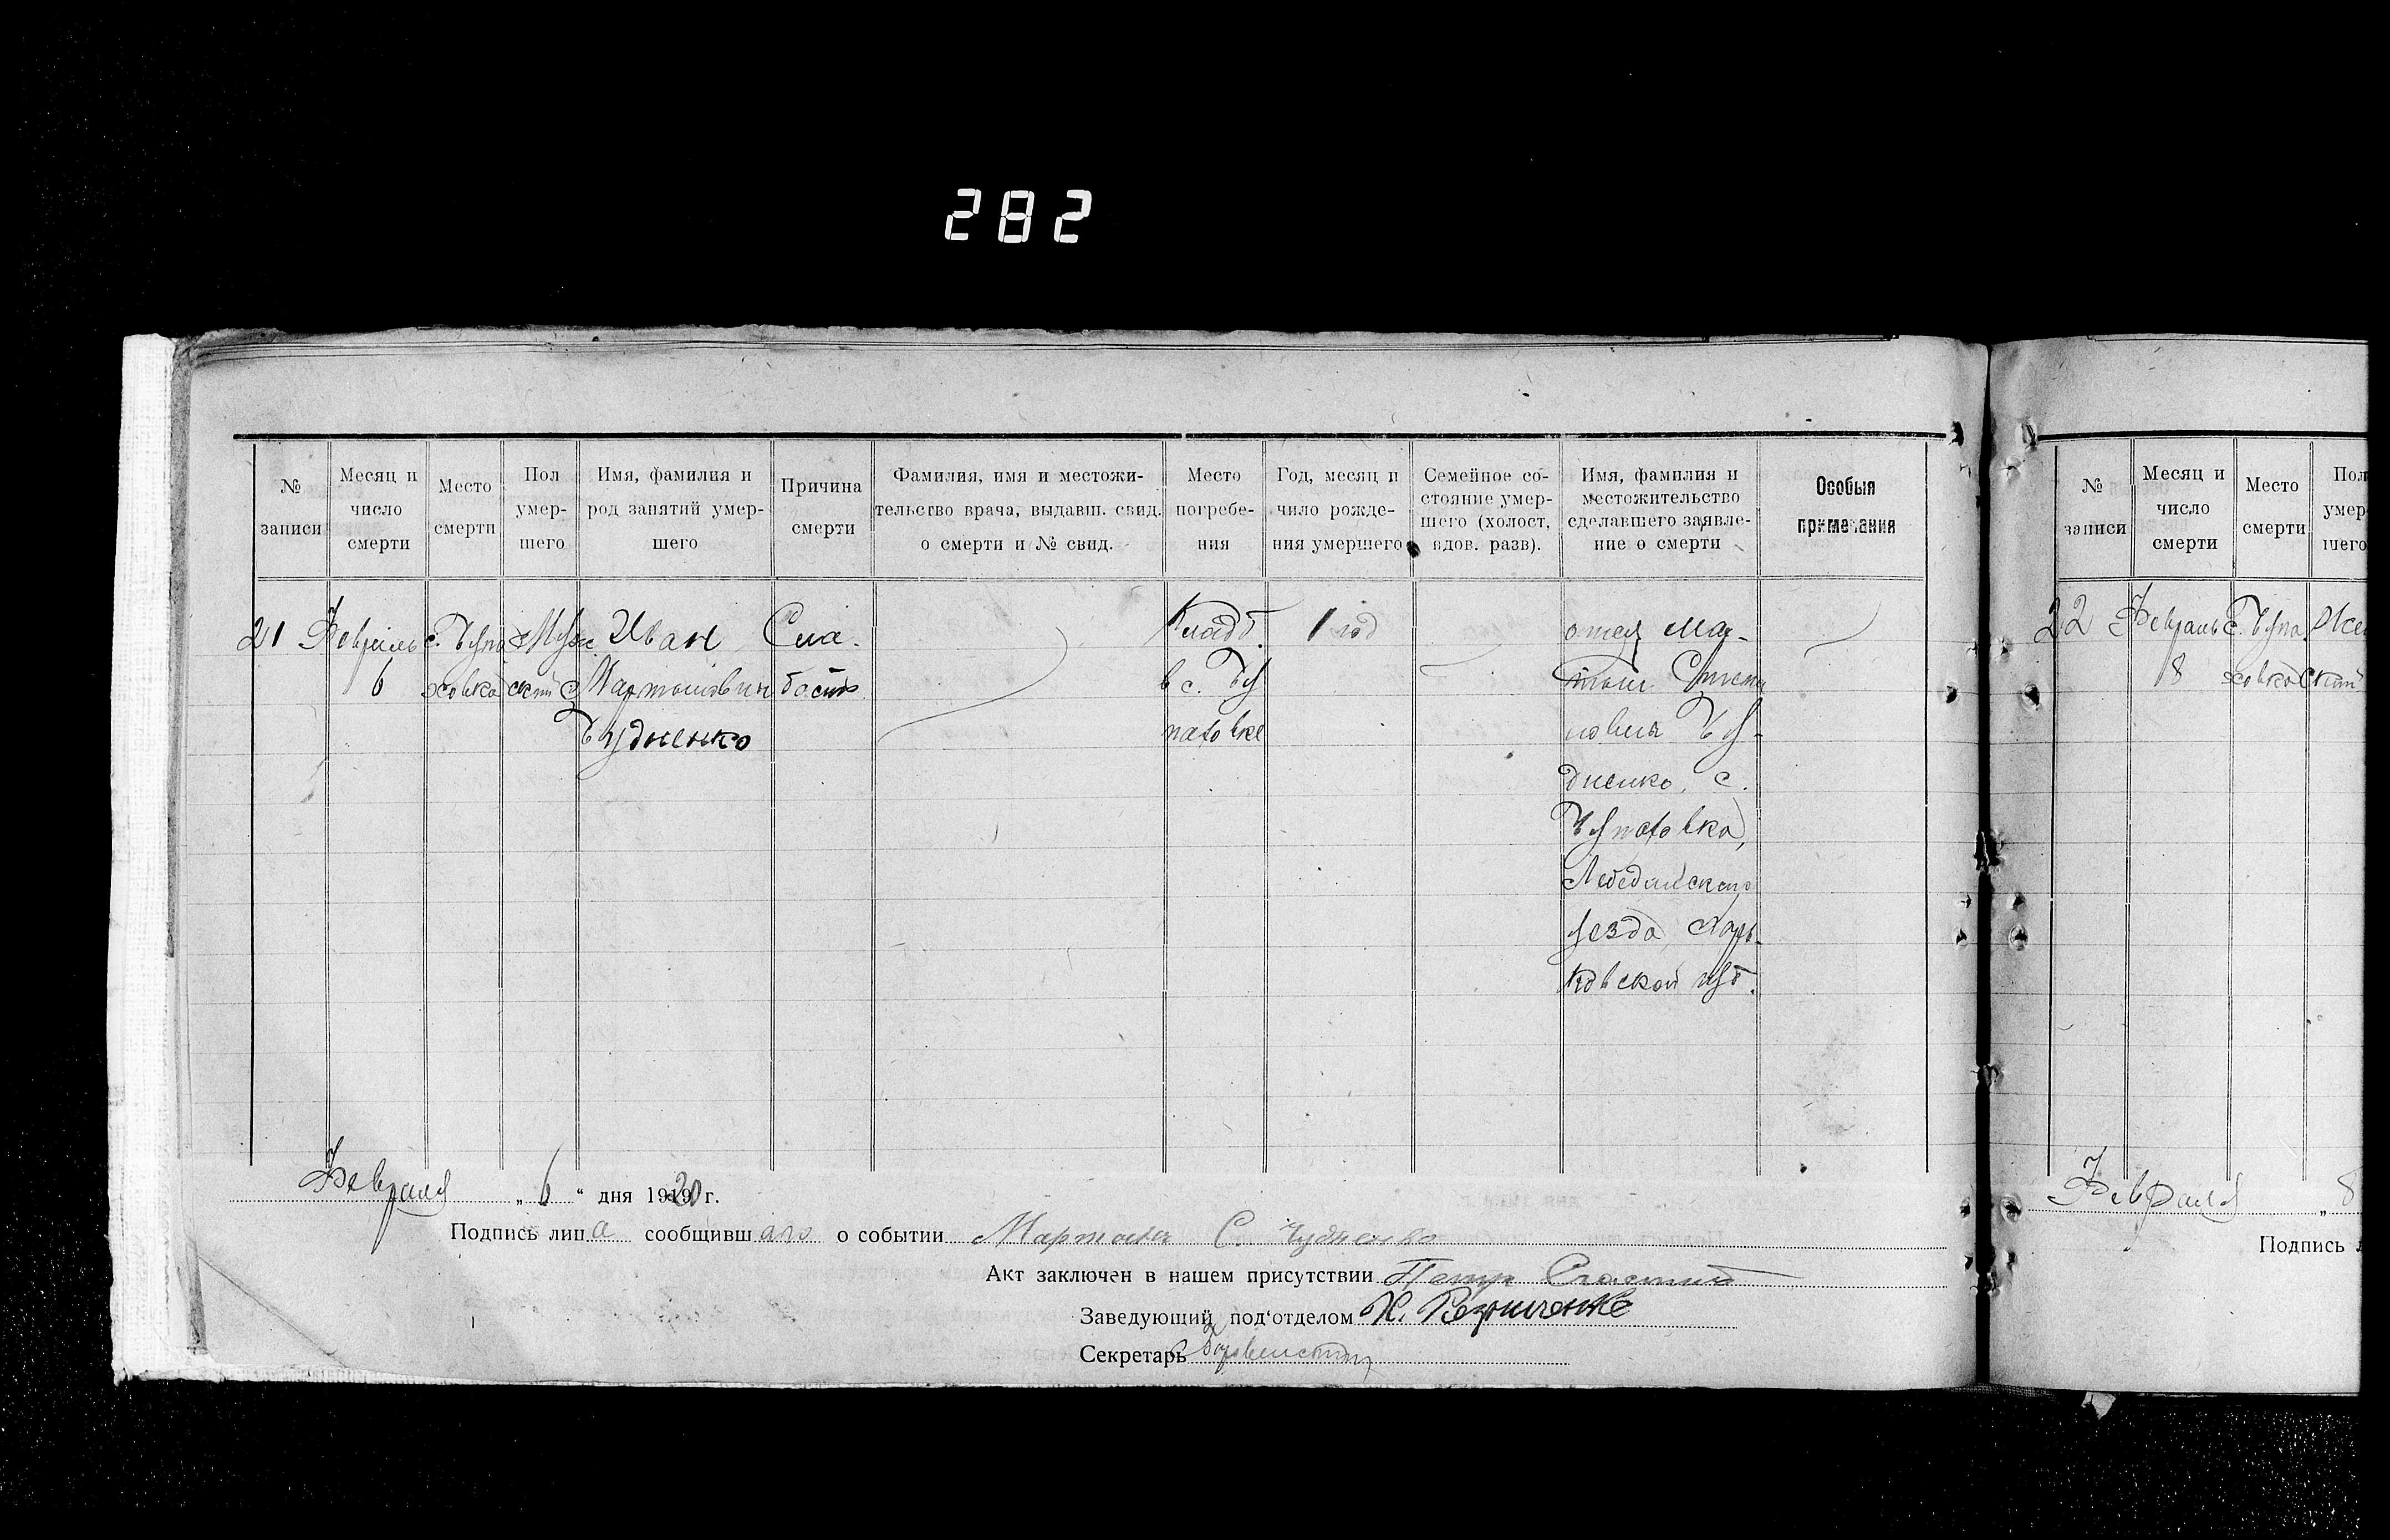 282
№ записи
Месяц и число смерти
Место смерти
Пол умер-шего
Имя, фамилия и род занятий умер-шего
Причина смерти
Фамилия, имя и местожи-тельство врача, выдавш. свид. о смерти и № свид.
Место погребе-ния
Год, месяц и чило рожде-ния умершего
Семейное со-стояние умер-шего (холост, вдов. разв).
Имя, фамилия и местожительство сделавшего заявле-ние о смерти
Особыя примечания
21
Февраль
6
с. Чупа
ховка
Муж
ский
Иван
Мартынович
Чудненко
Сла-
бость
Кладб.
в с. Чу
паховке
1 год
отец Мар-
тын Степа
нович Чу-
дненко, с.
Чупаховка,
Лебединскаго
уезда, Харь-
ковской губ.
Февраля „ 6 “ дня 1920 г.
Подпись лица сообщившаго о событии Мартын С. Чудненко
Акт заключен в нашем присутствии Петр
Заведующий под‘отделом
Секретарь
№ записи
Месяц и число смерти
Место смерти
Пол умер шего
22
Февраль
8
с. Чупа
ховка
Жен
ский
Февраля „ 8
Подпись л